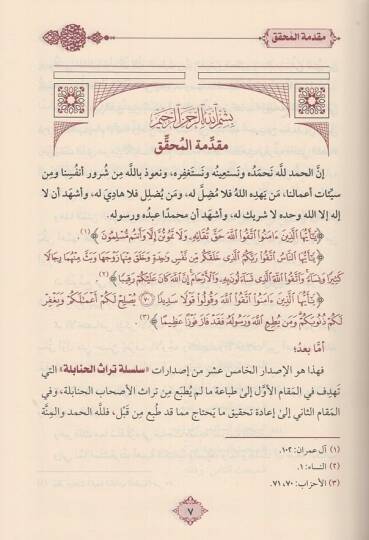 مقدمة المُحقق
بِسْمِ اللَّهِ الرَّحْمَنِ الرَّحِيمِ
مقدِّمة المُحقِّق
إنَّ الحمد للَّه نَحمَدُه ونَستعينُه ونَستَغفِره، ونعوذ باللَّه مِن شُرور أنفُسِنا ومِن
سيِّئات أعمالنا، مَن يَهدِه اللهُ فلا مُضِلَّ له، ومَن يُضلِل فلا هاديَ له، وأشهَد أن لا
إله إلا الله وحده لا شريك له، وأشهَد أن محمدًا عبدُه ورسوله.
﴿يَٰٓأَيُّهَا ٱلَّذِينَ ءَامَنُوا۟ ٱتَّقُوا۟ ٱللَّهَ حَقَّ تُقَاتِهِۦ وَلَا تَمُوتُنَّ إِلَّا وَأَنتُم مُّسْلِمُونَ﴾(١).
﴿يَٰٓأَيُّهَا ٱلنَّاسُ ٱتَّقُوا۟ رَبَّكُمُ ٱلَّذِى خَلَقَكُم مِّن نَّفْسٍ وَٰحِدَةٍ وَخَلَقَ مِنْهَا زَوْجَهَا وَبَثَّ مِنْهُمَا رِجَالًا
كَثِيرًا وَنِسَآءً وَٱتَّقُوا۟ ٱللَّهَ ٱلَّذِى تَسَآءَلُونَ بِهِۦ وَٱلْأَرْحَامَ إِنَّ ٱللَّهَ كَانَ عَلَيْكُمْ رَقِيبًا﴾(٢).
﴿يَٰٓأَيُّهَا ٱلَّذِينَ ءَامَنُوا۟ ٱتَّقُوا۟ ٱللَّهَ وَقُولُوا۟ قَوْلًا سَدِيدًا ٧٠ يُصْلِحْ لَكُمْ أَعْمَٰلَكُمْ وَيَغْفِرْ
لَكُمْ ذُنُوبَكُمْ وَمَن يُطِعِ ٱللَّهَ وَرَسُولَهُۥ فَقَدْ فَازَ فَوْزًا عَظِيمًا﴾(٣).
أمَّا بعدُ؛
فهذا هو الإصدار الخامس عشر من إصدارات «سلسلة تراث الحنابلة» التي
تَهدِف في المَقام الأوَّل إلى طباعة ما لم يُطبَع مِن تراث الأصحاب الحنابلة، وفي
المَقام الثاني إلى إعادة تحقيق ما يَحتاج مما قد طُبع مِن قَبْل، فللَّه الحمد والمِنَّة
(١) آل عمران: ١٠٢.
(٢) النساء: ١.
(٣) الأحزاب: ٧٠، ٧١.
٧